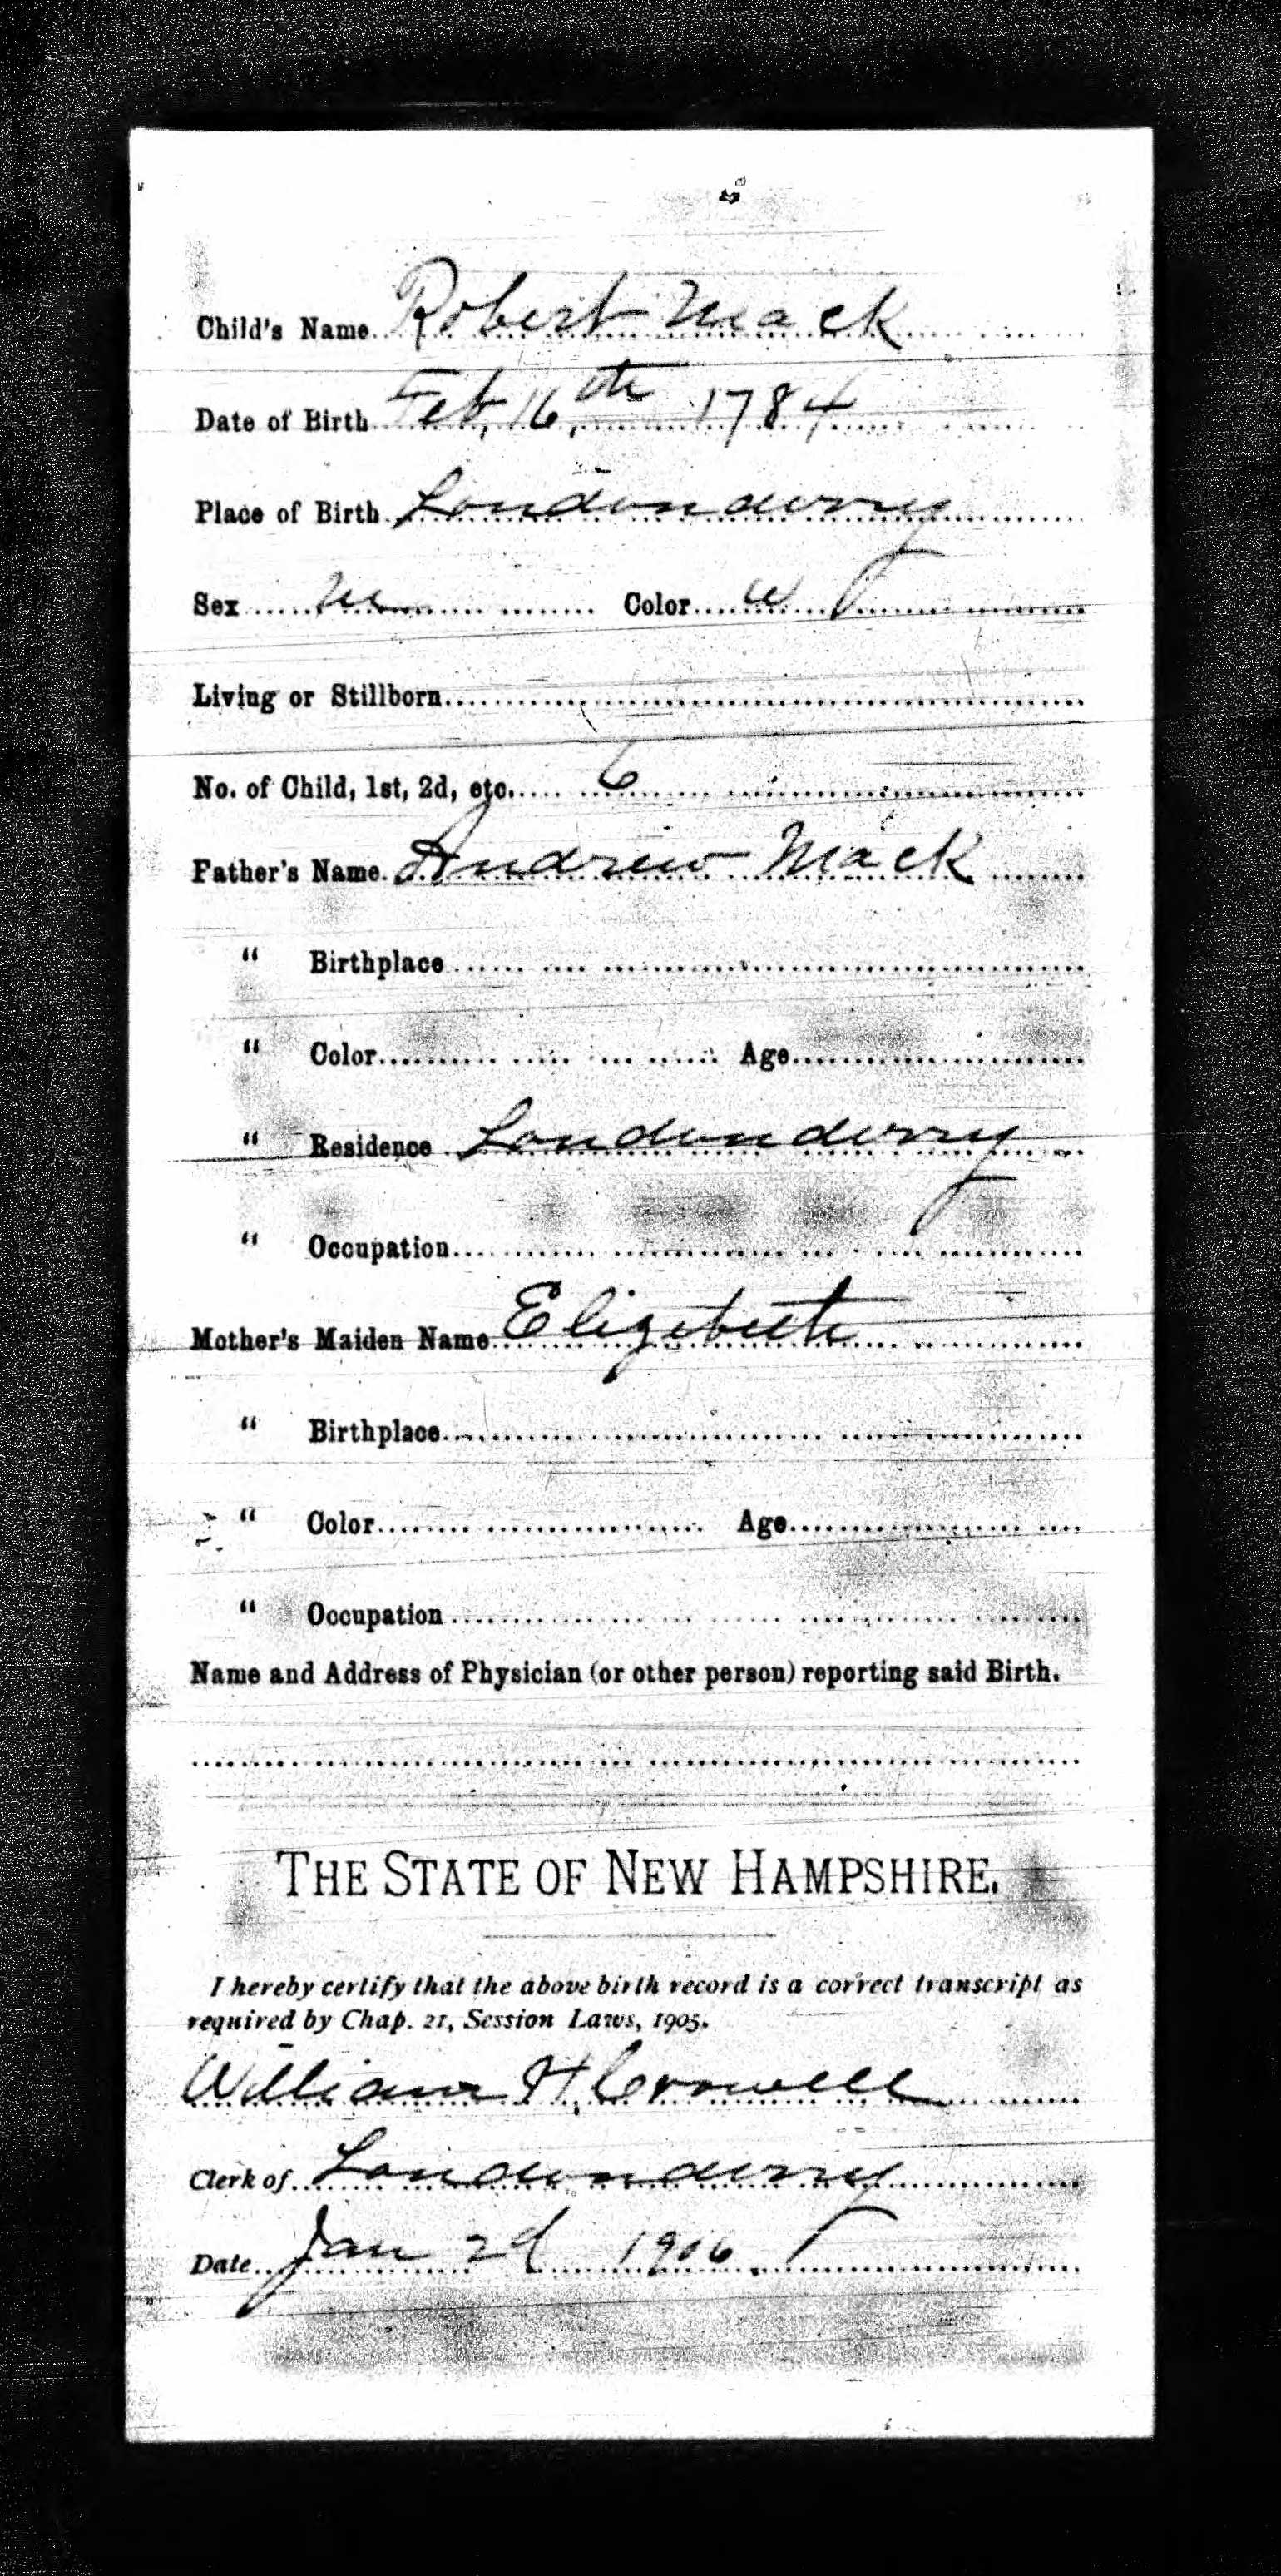 Child's Name Robert Mack
Date of Birth Feb, 16,th 1784
Place of Birth Londonderry
Sex M Color W
Living or Stillborn
No. of Child, 1st, 2d, etc. 6
Father's Name Andrew Mack
" Birthplace
" Color Age
" Residence Londonderry
" Occupation
Mother's Maiden Name Elizabeth
" Birthplace
" Color Age
" Occupation
Name and Address of Physician (or other person) reporting said Birth.
THE STATE OF NEW HAMPSHIRE.
I hereby certify that the above birth record is a correct transcript as
required by Chap. 21, Session Laws, 1905.
William H. Crowell
Clerk of Londonderry
Date Jan 2d 1906